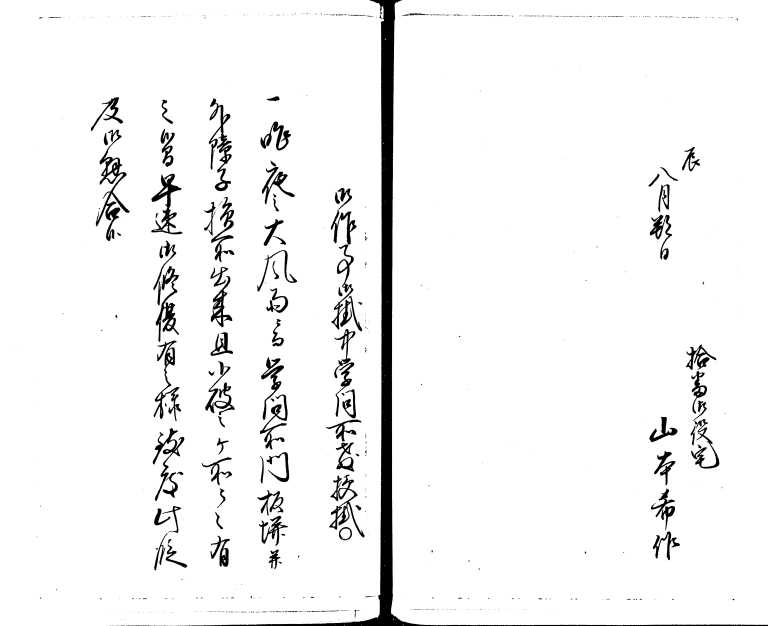 辰
八月朔日
拾番御役宅
山本希作
御作事御掛中学問所教授掛〇
一昨夜之大風雨ニ而学問所門板塀並
外障子損所出来且小破之ケ所々々有
之候間早速御修復有之様致度此段
及御懸合候